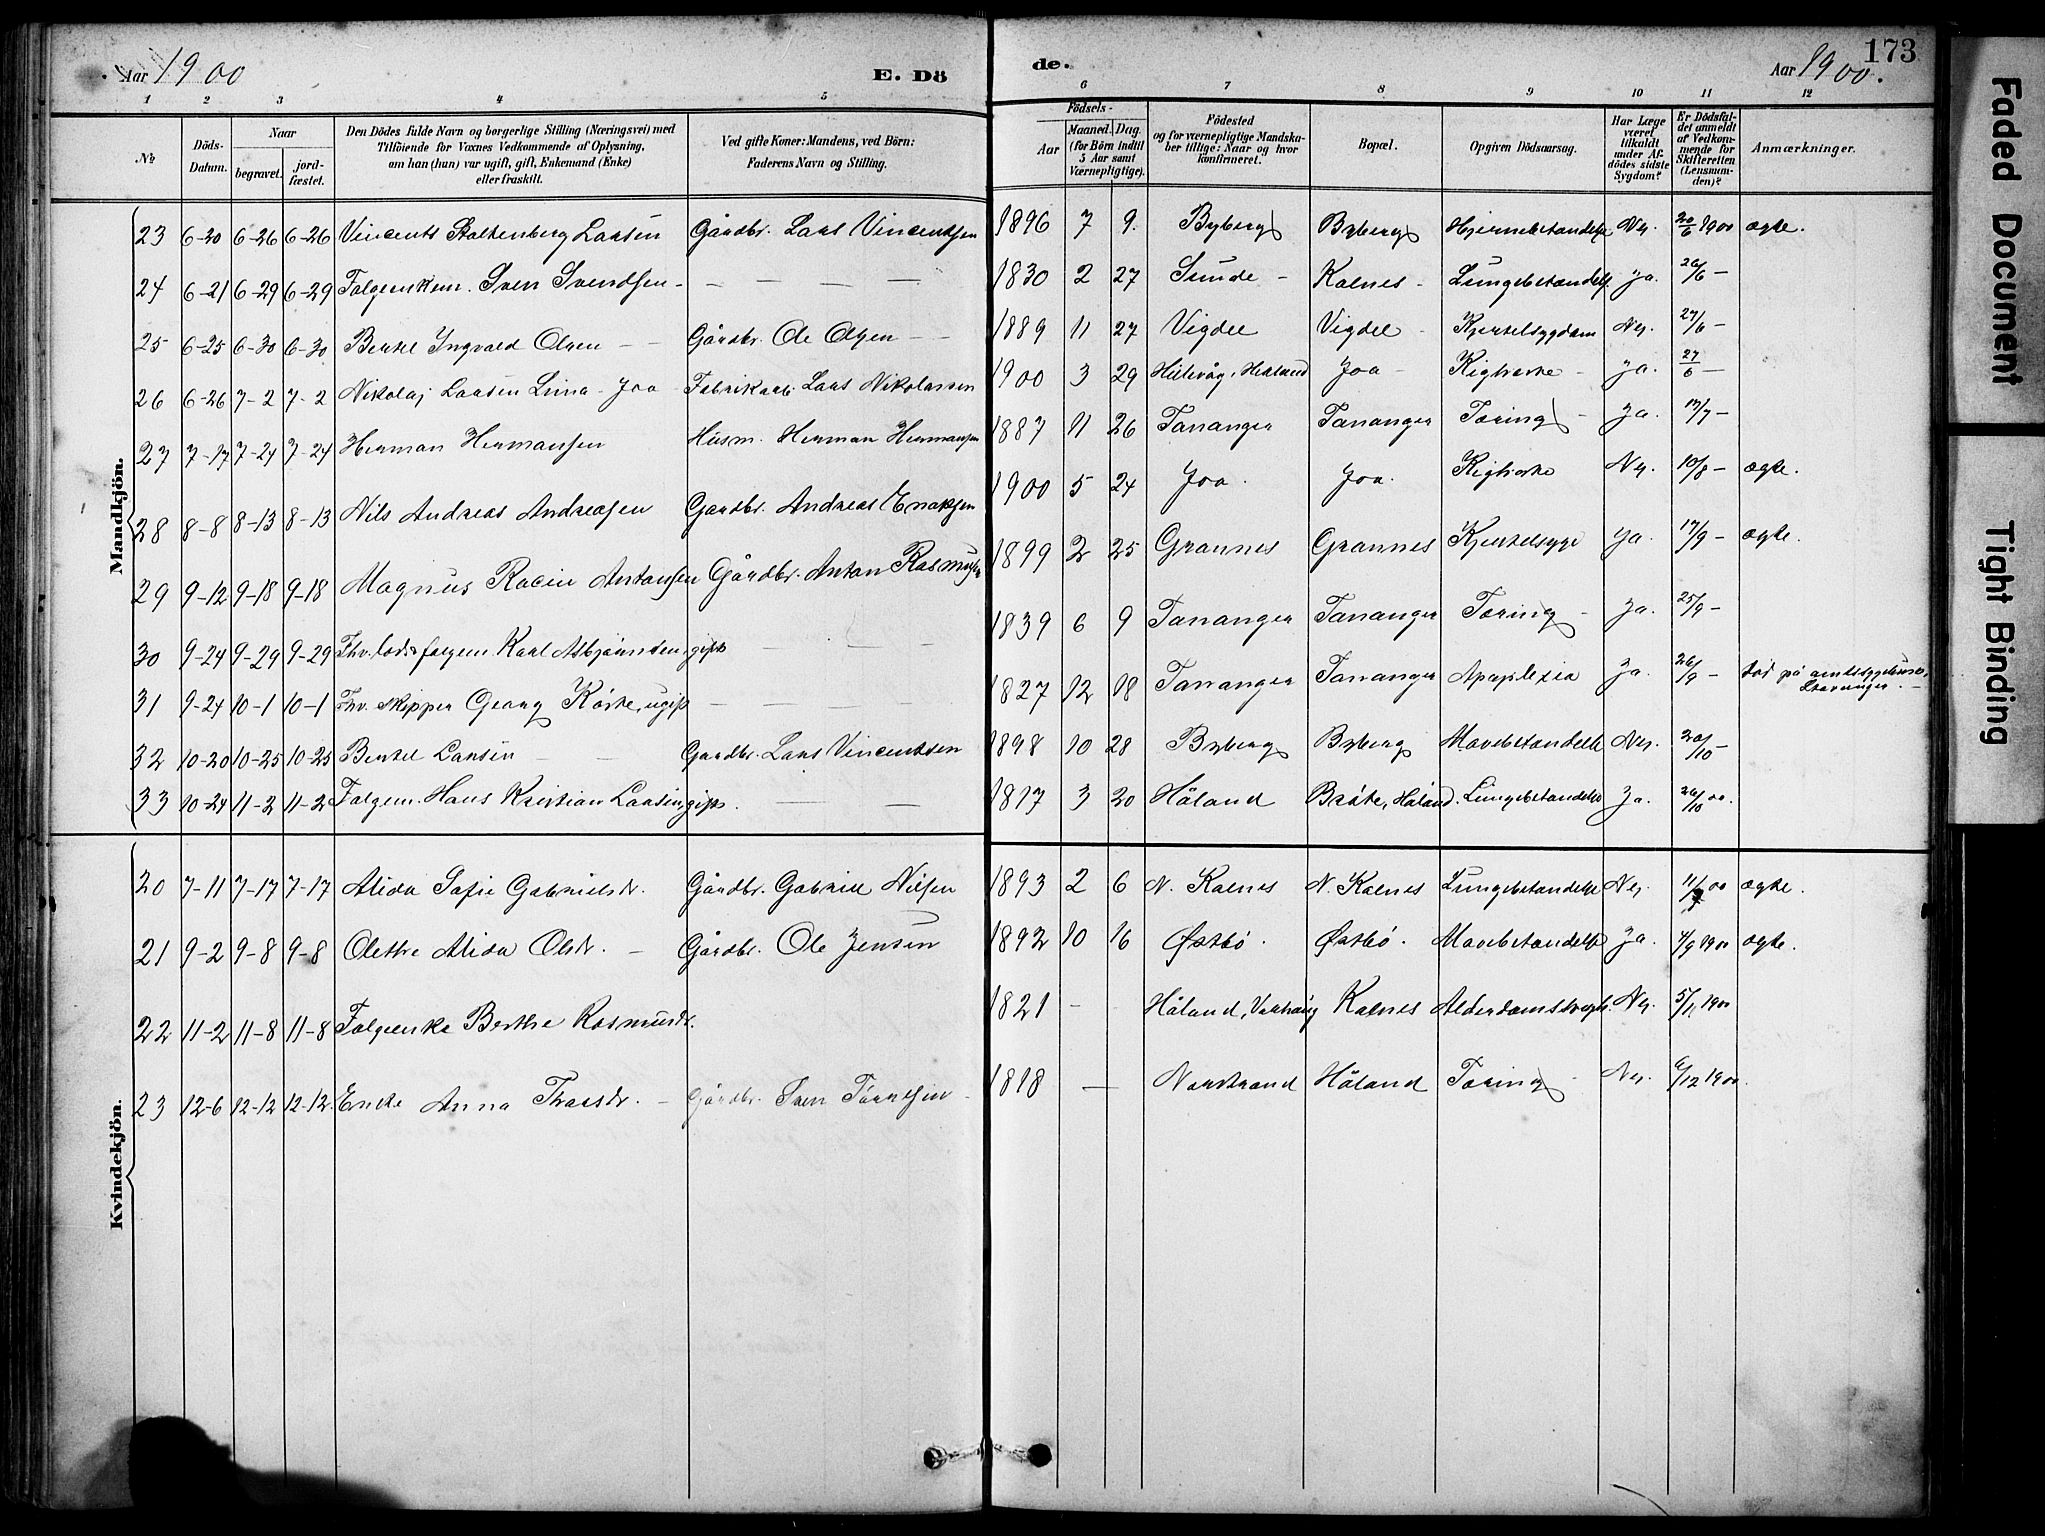 173
Aar 1900 E. Dö de. Aar 1900.
1 2 3 4 5 6 7 8 9 10 11 12
No
Döds-Datum.
Naar begravet. jord-fæstet.
Den Dödes fulde Navn og borgerlige Stilling (Næringsvei) med Tilföiende for Voxnes Vedkommende af Oplysning, om han (hun) var ugift, gift, Enkemand (Enke) eller fraskilt.
Ved gifte Koner: Mandens, ved Börn: Faderens Navn og Stilling.
Födsels- Aar Maaned. Dag. (for Börn indtil 5 Aar samt Værnepligtige).
Födested og for værnepligtige Mandskaber tillige: Naar og hvor konfirmeret.
Bopæl.
Opgiven Dödsaarsag.
Har Læge været tilkaldt under Afdödes sidste Sygdom?
Er Dödsfaldet anmeldt af Vedkommende for Skifteretten (Lensmanden)?
Anmærkninger.
Mandkjön.
23 6-20 6-26 6-26 Vincents Stoltenberg Larsen Gårdbr. Lars Vincentsen 1896 7 9. Byberg Byberg Hjernebetændelse Nej. 20/6 1900 ægte.
24 6-21 6-29 6-29 Folgeenkem. Sven Svendsen - — — — — 1830 2 27 Sunde - Kolnes - Lungebetændelse ja. 26/6 —
25 6-25 6-30 6-30 Bertel Ingvald Olsen — Gårdbr. Ole Olsen — 1889 11 27 Vigdel Vigdel - Kjertelsygdom Nej. 27/6 —
26 6-26 7-2 7-2 Nikolaj Larsen Lima - Joa Fabrikarb. Lars Nikolaisen 1900 3 29 Hillevåg, Hetland Joa - Kighoste - ja. 27/6 —
27 7-17 7-24 7-24 Herman Hermansen Husm. Herman Hermansen 1887 11 26 Tananger Tananger Tæring - Ja. 17/7 —
28 8-8 8-13 8-13 Nils Andreas Andreasen Gårdbr. Andreas Enoksen 1900 5 24 Joa. Joa. Kighoste Nej. 10/8 — ægte.
29 9-12 9-18 9-18 Magnus Racin Antonsen Gårdbr. Anton Rasmusen 1899 2 25 Grannes Grannes Kjertelsyge ja. 17/9 — ægte.
30 9-24 9-29 9-29 Fhv. lods folgem. Karl Asbjørnsen, gift — — 1839 6 9 Tananger Tananger Tæring - ja. 25/9 —
31 9-24 10-1 10-1 Fhv. skipper Georg Køste, ugift — — — — 1827 12 18 Tananger Tananger Apoplexia Ja. 26/9 — død på amtssygehuset, Stavanger. —
32 10-20 10-25 10-25 Bertel Larsen — — Gardbr. Lars Vincentsen 1898 10 28 Byberg Byberg Mavebetændelse Nej. 20/10 —
33 10-24 11-2 11-2 Folgem. Hans Kristian Larsen, gift. — — 1817 3 20 Håland Bråte, Håland. Lungebetændelse Ja. 26/10 00.
Kvindekjön.
20 7-11 7-17 7-17 Alida Sofie Gabrielsdr. Gårdbr. Gabriel Nilsen 1893 2 6 N. Kolnes N. Kolnes Lungebetændelse Nej. 11/7 00 ægte.
21 9-2 9-8 9-8 Olethe Alida Olsdr. — Gårdbr. Ole Jensen 1892 10 16 Østbø. Østbø. Mavebetændelse ja. 4/9 1900 ægte.
22 11-2 11-8 11-8 Folgeenke Berthe Rasmusdr. 1821 — Håland, Varhaug Kolnes Alderdomssvagh. Nej. 5/11 1900
23 12-6 12-12 12-12 Enke Anna Thorsdr. — Gårdbr. Sven Tørresen - 1818 — Norstrand Håland Tæring - Nej. 6/12 1900.
Faded Document
Tight Binding